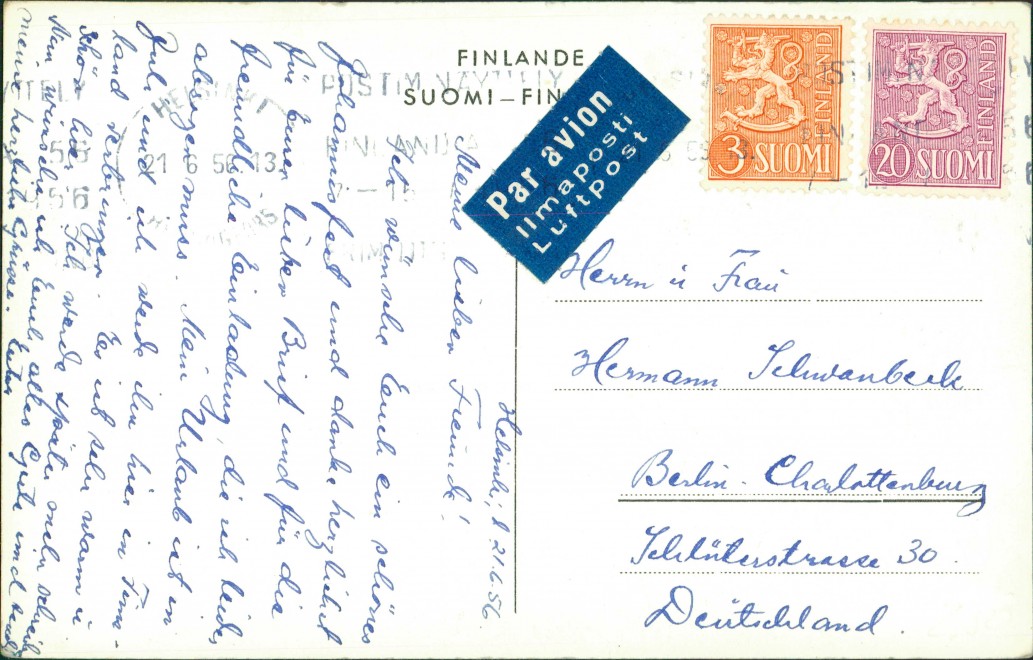 FINLANDE
SUOMI – FIN
Par avion
Ilmaposti
Luftpost
3 SUOMI
FINLAND
20 SUOMI
FINLAND
HELSINKI
21. 6 56. 13
Helsinki, d 21.6.56.
Meine lieben Freunde!
Ich wünsche Euch ein schönes
Johannisfest und danke herzlichst
für Euren lieben Brief und für die
freundliche Einladung, die ich leider
absagen muss. Mein Urlaub ist in
Juli und ich werde ihn hier in Finn-
land verbringen. Es ist sehr warm u
schön hier. Ich werde später mehr schreiben
Nun wünsche ich Euch alles Gute und sende
meine herzlichen Grüsse. Euer
Herrn u Frau
Hermann Schwanbeck
Berlin - Charlottenburg
Schlüterstrasse 30
Deutschland.